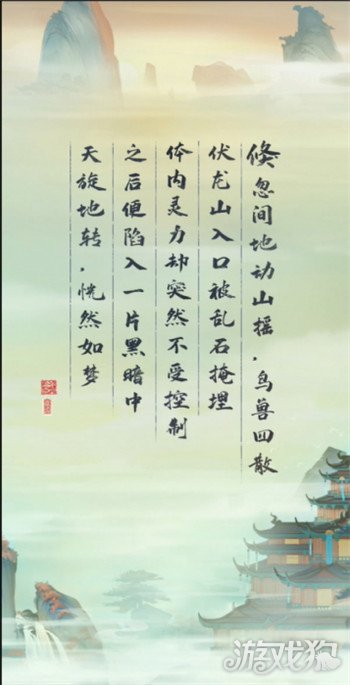 倏忽间地动山摇，鸟兽四散
伏龙山入口被乱石掩埋
体内灵力却突然不受控制
之后便陷入一片黑暗中
天旋地转，恍然如梦
游戏狗